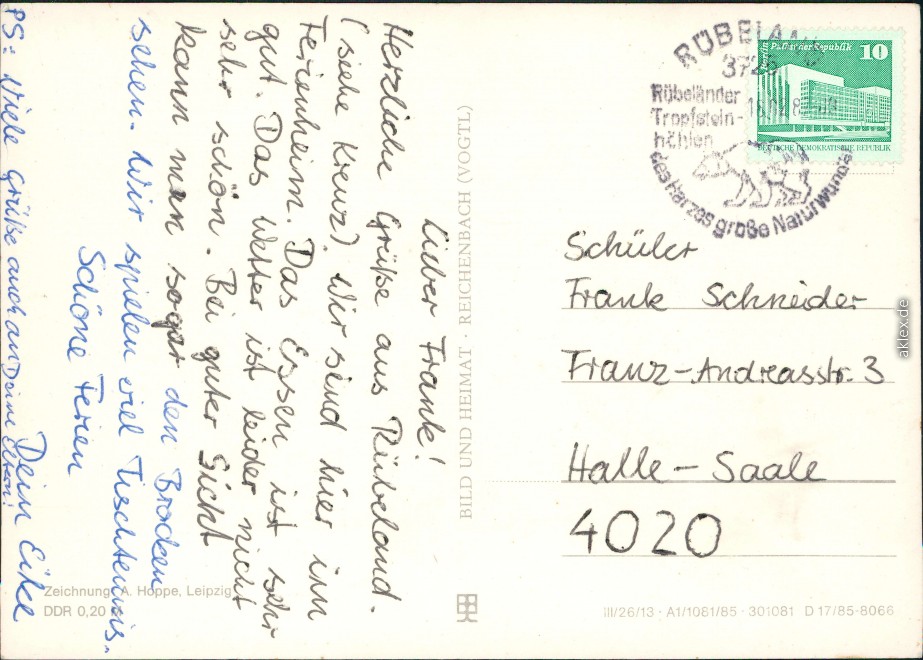 Lieber Frank!
Herzliche Grüße aus Rübeland.
(siehe Kreuz). Wir sind hier im
Ferienheim. Das Essen ist sehr
gut. Das Wetter ist leider nicht
sehr schön. Bei guter Sicht
kann man sogar den Brocken
sehen. Wir spielen viel Tischtennis.
Schöne Ferien
Dein Eike
PS: Viele Grüße auch an Deine Eltern!
BILD UND HEIMAT · REICHENBACH (VOGTL)
RÜBELAND
Rübeländer
Tropfstein-
höhlen
des Harzes große Naturwunder
Berlin Palast der Republik 10
DEUTSCHE DEMOKRATISCHE REPUBLIK
Schüler
Frank Schneider
Franz-Andreasstr. 3
Halle-Saale
4020
Zeichnung: A. Hoppe, Leipzig
DDR 0,20
III/26/13 · A1/1081/85 · 301081 D 17/85-8066
aklex.de